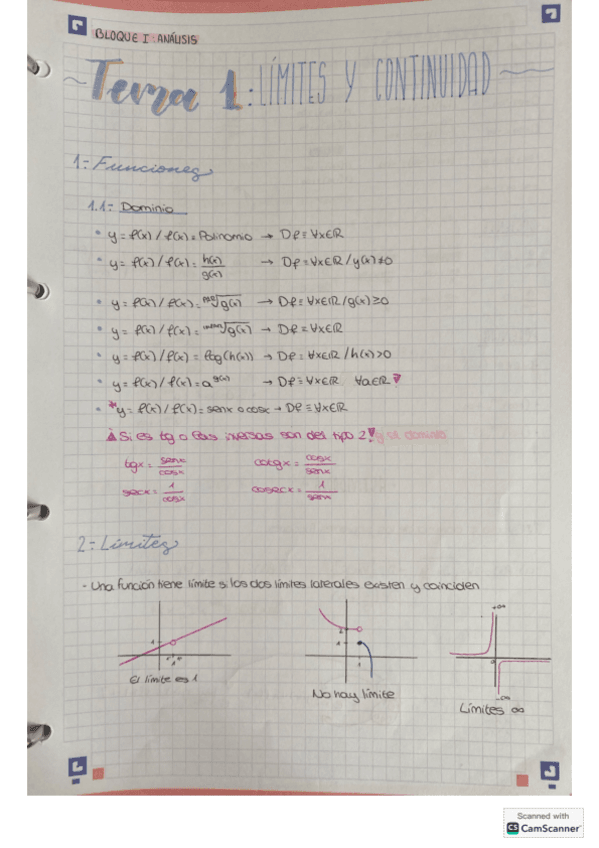 BLOQUE I: ANÁLISIS
Tema 1: LÍMITES Y CONTINUIDAD
1= Funciones
1.1= Dominio
• y = f(x) / f(x) = Polinomio → Df = ∀x∈ℝ
• y = f(x) / f(x) = h(x)/g(x) → Df = ∀x∈ℝ / y(x) ≠ 0
• y = f(x) / f(x) = par√g(x) → Df = ∀x∈ℝ / g(x) ≥ 0
• y = f(x) / f(x) = impar√g(x) → Df = ∀x∈ℝ
• y = f(x) / f(x) = log(h(x)) → Df = ∀x∈ℝ / h(x) > 0
• y = f(x) / f(x) = a^g(x) → Df = ∀x∈ℝ ∀a∈ℝ
• *y = f(x) / f(x) = senx o cosx → Df = ∀x∈ℝ
Si es tg o las inversas son del tipo 2! y se
tgx = senx/cosx cotgx = cosx/senx
secx = 1/cosx cosecx = 1/senx
2= Límites
- Una función tiene límite si los dos límites laterales existen y coinciden
+∞
1
1
0
-∞
El límite es 1
No hay límite
Límites ∞
Scanned with
CS CamScanner